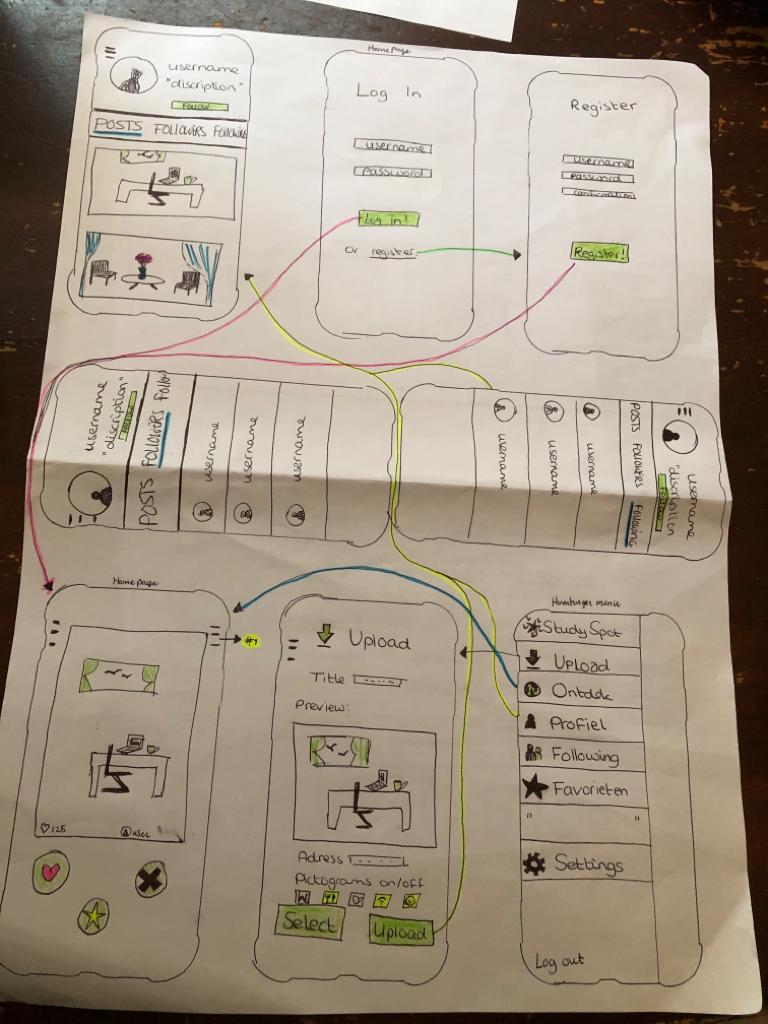 username
"discription"
FOLLOW
POSTS FOLLOWERS FOLLOWING
HomePage
Log In
username
password
Log in!
Or register
Register
username
password
confirmation
Register!
username
"discription"
FOLLOW
POSTS FOLLOWERS FOLLOW
username
username
username
username
"discription"
FOLLOW
POSTS FOLLOWERS FOLLOWING
username
username
username
HomePage
#1
125
user
Upload
Title
Preview:
Adress
Pictograms on/off
Select
Upload
Humburger menu
StudySpot
Upload
Ontdek
Profiel
Following
Favorieten
" "
Settings
Log out